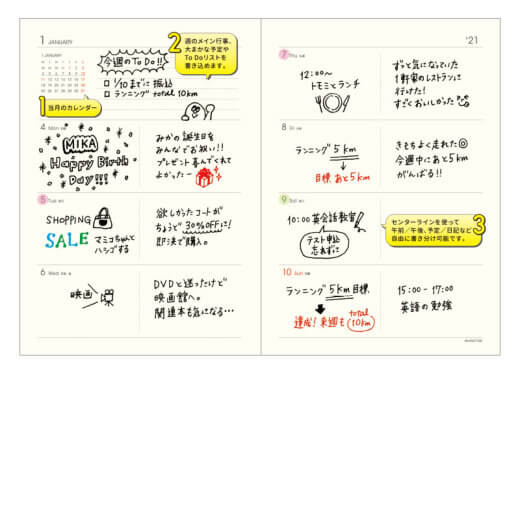 1 JANUARY
1 JANUARY
今週のTo Do!!
□ 1/10までに振込
□ ランニング total 10km
2 週のメイン行事、
大まかな予定や
To Doリストを
書き込めます。
1 当月のカレンダー
4 Mon
MIKA
Happy Birth
Day!!!
みかの誕生日を
みんなでお祝い!!
プレゼント喜んでくれて
よかったー
5 Tue
SHOPPING
SALE
マミコちゃんと
ハシゴする
欲しかったコートが
ちょうど30%OFFに!
即決で購入。
6 Wed
映画
DVDと迷ったけど
映画館へ。
関連本も気になる…
'21
7 Thu
12:00〜
トモミとランチ
ずっと気になっていた
1軒家のレストランに
行けた!
すごくおいしかった
8 Fri
ランニング 5km
目標 あと5km
きもちよく走れた◎
今週中にあと5km
がんばる!!
9 Sat
10:00 英会話教室
テスト申込
忘れずに
センターラインを使って
午前/午後、予定/日記など
自由に書き分け可能です。
3
10 Sun
ランニング 5km 目標
達成! 来週も total
10km
15:00 - 17:00
英語の勉強